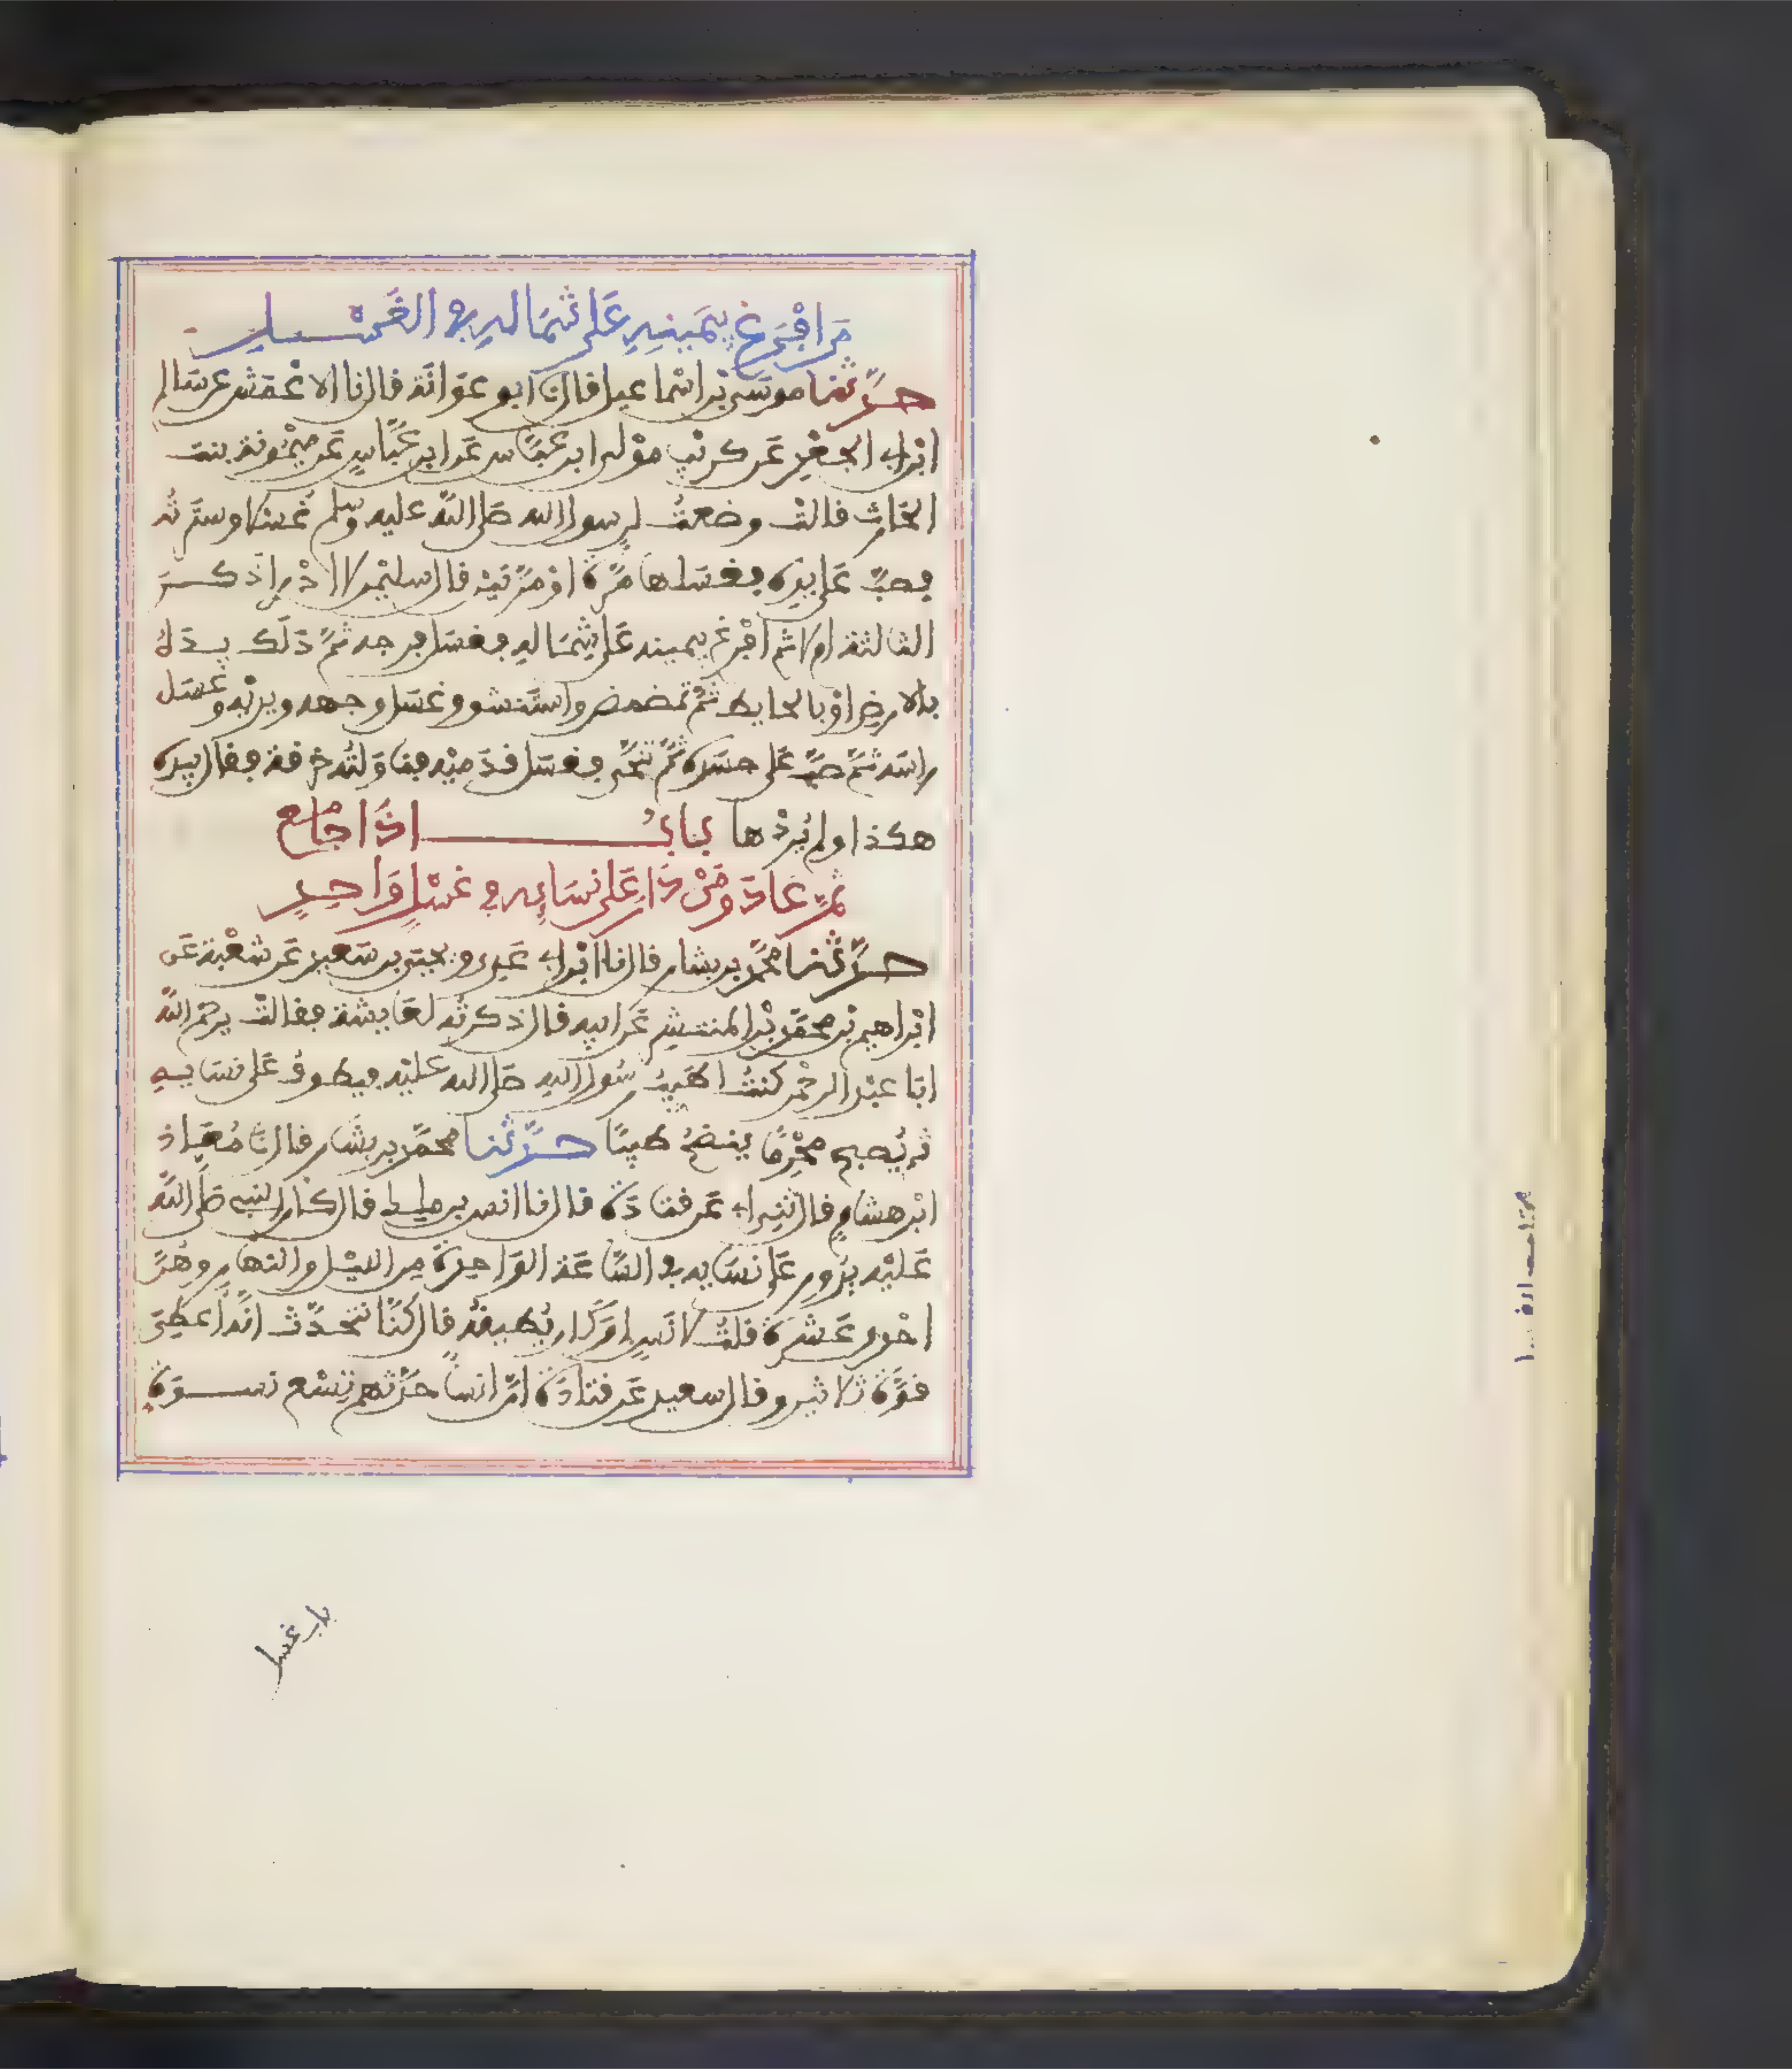 مَن افْرَغ بِيَمينِهِ عَلى شمَالهِ في الغَسْل
حدَّثنا موسَى بْن اسْماعيل قال نا ابو عوَانَة قال نا الاعْمَش عن سَالم
ابْن ابي الجعْدِ عَن كريْبٍ موْلى ابن عبَّاس عَن ابن عبَّاسٍ عَن ميْمُونة بنت
الحَارث قالتْ وضعتُ لرسول الله صَلى اللهُ عليه وسلم غُسْلا وسترتُه
فصبَّ عَلى يدِه فغسَلها مرَّة اوْ مرَّتيْن قال سليْمن لا ادْري اذَكَرَ
الثالثة ام لا ثم افْرغ بيمينه عَلى شِمَاله فغسَل فرجه ثمَّ دَلَك يدَهُ
بالارضِ اوْ بالحايط ثمَّ تمضمض واستَنشق وغسَل وجهه ويديْه وغسَل
راسَه ثمَّ صبَّ عَلى جسَده ثمَّ تنَحَّى فغسَل قدَميْه فناوَلتُه خرقة فقال بيده
هكذا ولم يُردْها بابُ اذَا جَامَع
ثمَّ عَادَ ومَنْ دَارَ عَلى نسَايِه في غسْلٍ وَاحِدٍ
حدَّثنا محمَّد بن بشار قال نا ابْن ابي عَدِي ويحيى بن سَعيد عَن شعْبة عَن
ابْراهيم بْن محمَّد بْن المنتشِر عَن ابيه قال ذكرتُه لعَايشة فقالتْ يرحَم اللهُ
ابَا عبْد الرحْمن كنتُ اطَيِّبُ رسُول اللهِ صَلى الله عليْه فيطوفُ عَلى نسَايهِ
ثم يُصبح محْرِمًا ينضخُ طيبًا حدَّثنا محمَّد بن بشَار قال نا مُعَاذ
ابْن هشامٍ قال ثني ابي عَن قتَادَة قال نا انس بن ملك قال كان النبي صَلى اللهُ
عَليْه يدُور عَلى نسَايه في السَّاعَة الوَاحِدة مِن الليْل والنهارِ وهُنَّ
احْدى عَشرة قلتُ لانَسٍ اوَكَان يُطيقُه قال كنَّا نتحدَّث انَّه اعطِيَ
قوَّة ثلاثين وقال سعيد عَن قتادَة انَّ انسًا حدَّثهم تِسْع نسوَة
باب غسل